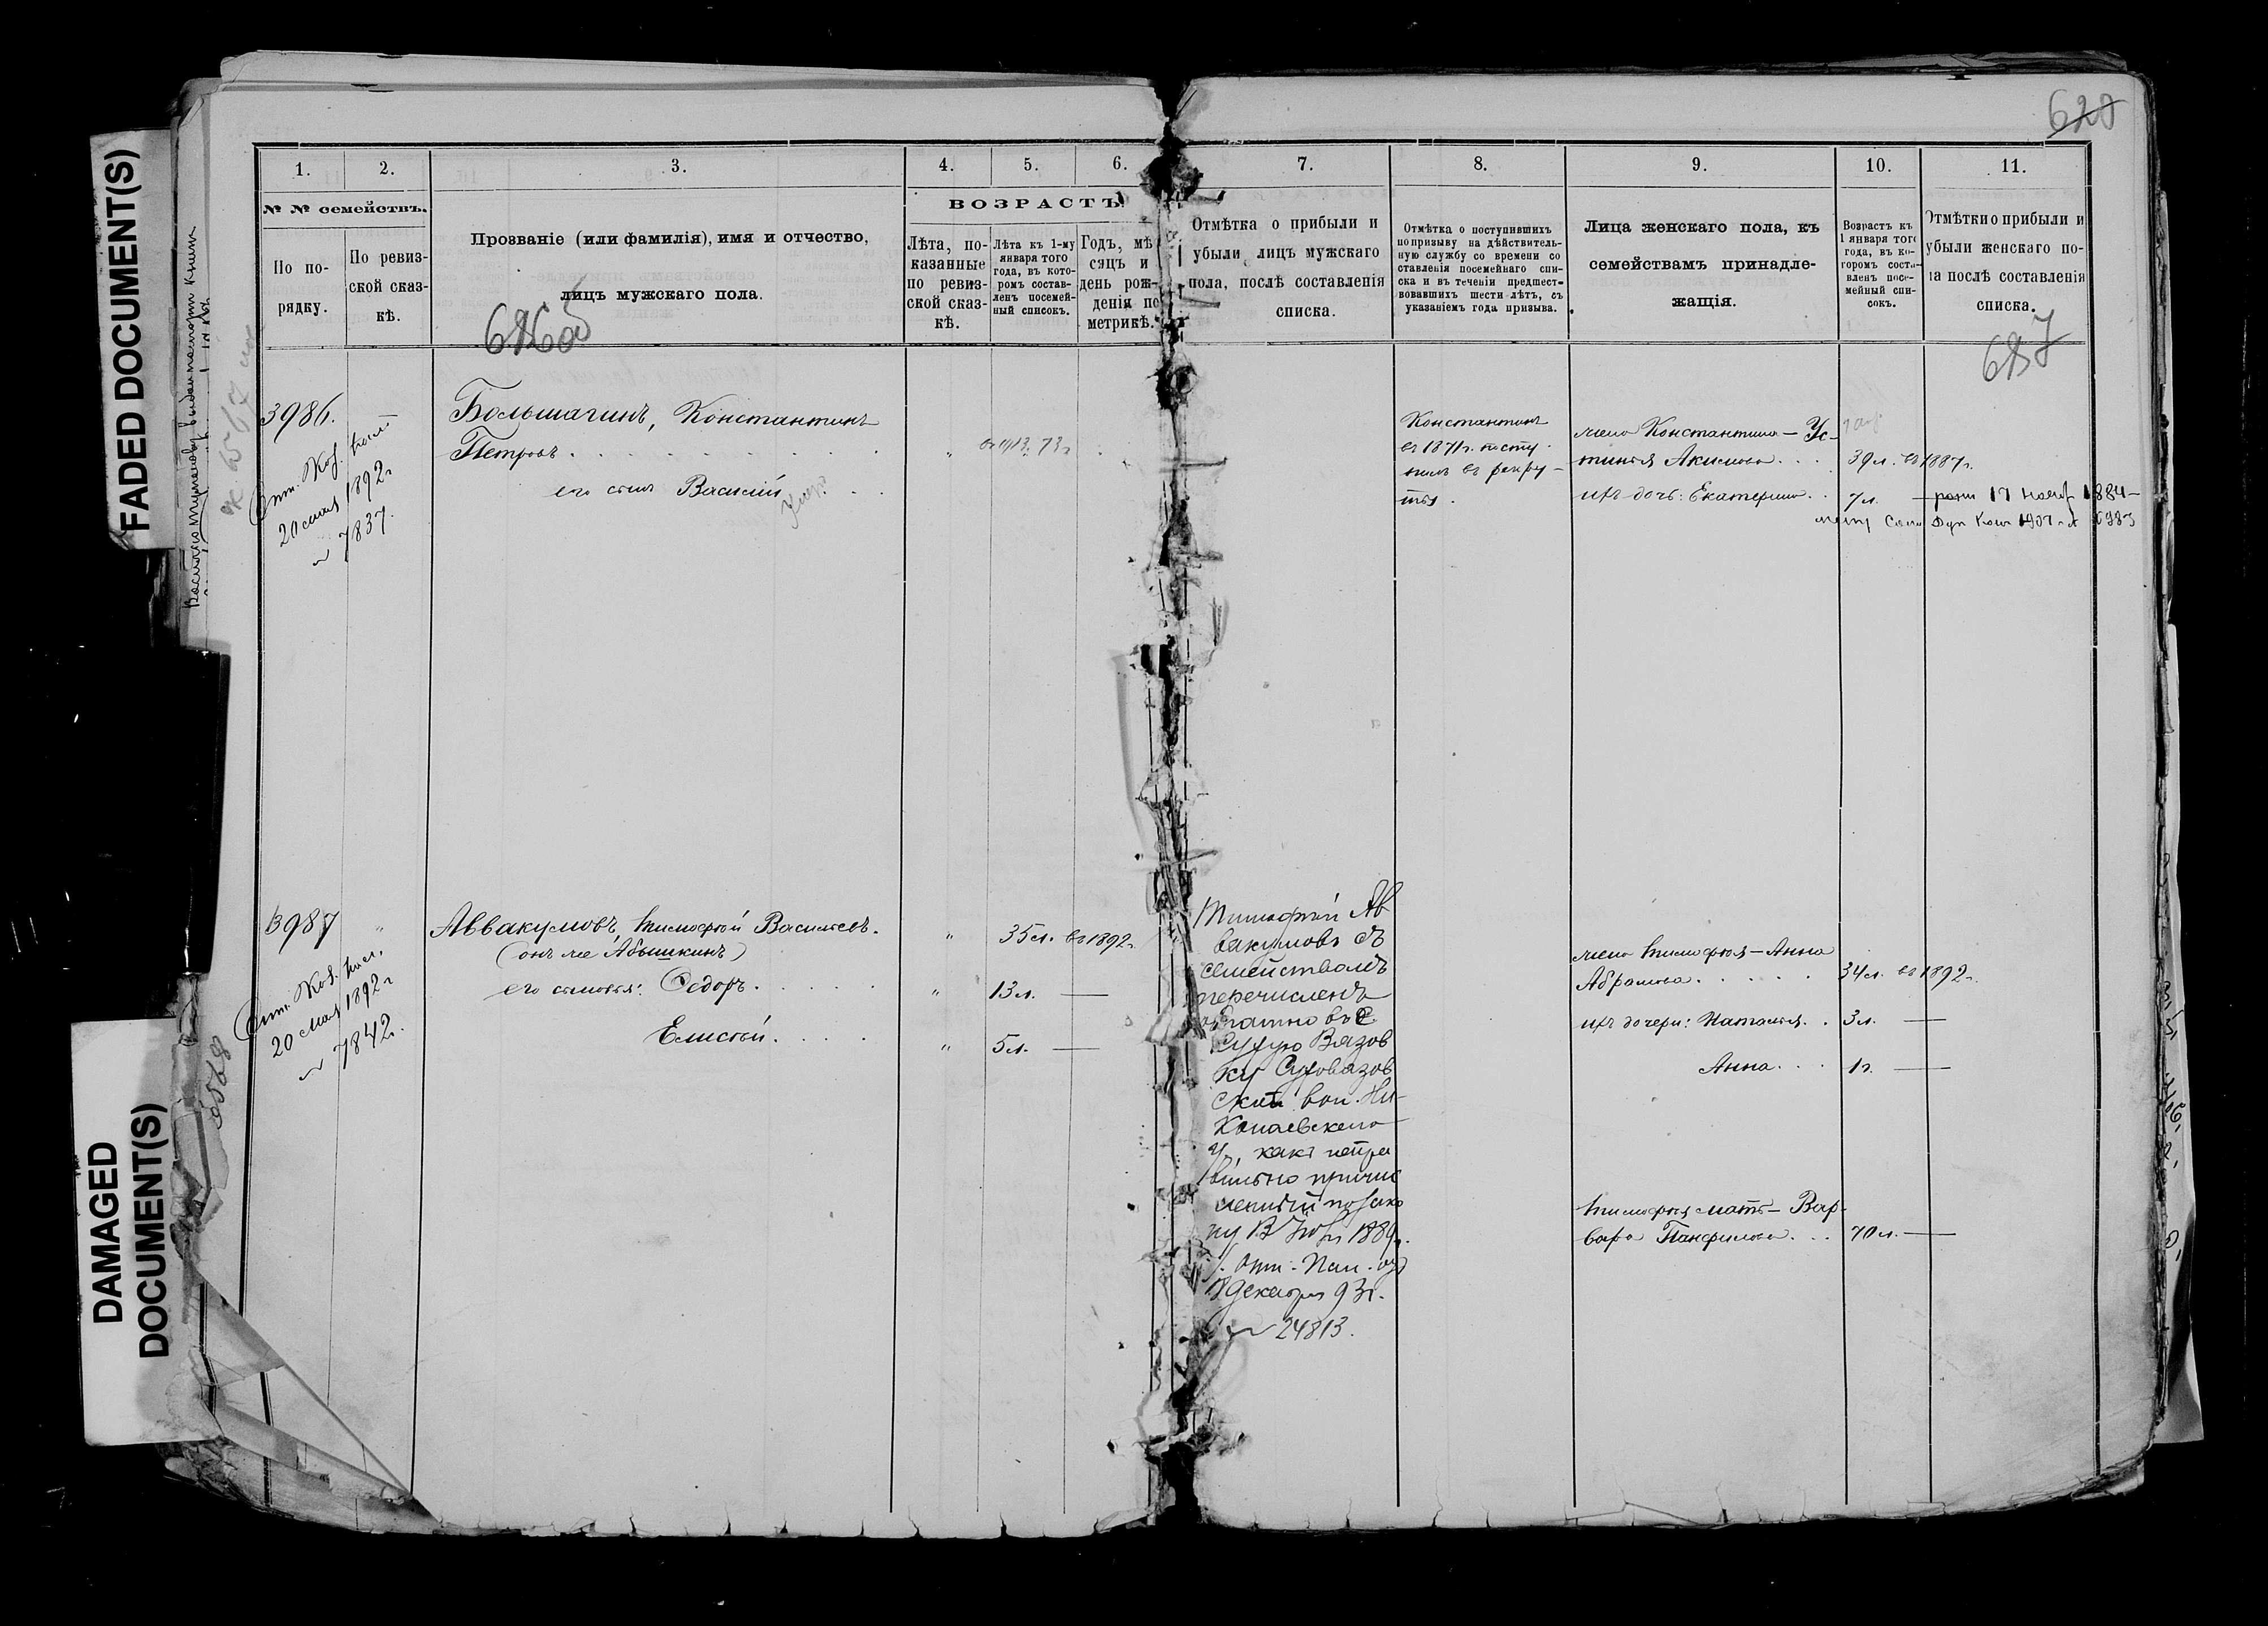 FADED DOCUMENT(S)
DAMAGED
DOCUMENT(S)
620
1.
2.
3.
4.
5.
6.
7.
8.
9.
10.
11.
№ № семействъ.
По по-
рядку.
По ревиз-
ской сказ-
кѣ.
Прозваніе (или фамилія), имя и отчество,
лицъ мужскаго пола.
ВОЗРАСТЪ
Лѣта, по-
казанные
по ревиз-
ской сказ-
кѣ.
Лѣта къ 1-му
января того
года, въ кото-
ромъ состав-
ленъ посемей-
ный списокъ.
Годъ, мѣ
сяцъ и
день рож-
денія по
метрикѣ.
Отмѣтка о прибыли и
убыли лицъ мужскаго
пола, послѣ составленія
списка.
Отмѣтка о поступившихъ
по призыву на дѣйствитель-
ную службу со времени со
ставленія посемейнаго спи-
ска и въ теченіи предшест-
вовавшихъ шести лѣтъ, съ
указаніемъ года призыва.
Лица женскаго пола, къ
семействамъ принадле-
жащія.
Возрастъ къ
1 января того
года, въ ко-
торомъ соста-
вленъ посе-
мейный спи-
сокъ.
Отмѣтки о прибыли и
убыли женскаго по-
ла послѣ составленія
списка.
3986.
20 мая 1892 г
№ 7837.
Большагинъ, Константинъ
Петровъ
его сынъ Василій
въ 1913. 73 г
Константинъ
въ 1871 г. посту-
пилъ въ рекру-
ты.
жена Константина — Ус-
тинья Акимова
39 л. въ 1887 г.
ихъ дочь: Екатерина
7 л.
17 1884
3987
20 мая 1892 г
№ 7842.
Аввакумовъ, Тимофѣй Васильевъ.
(онъ же Абышкинъ)
35 л. въ 1892 г.
его сыновья: Ѳедоръ
13 л.
Елисѣй
5 л.
Тимофѣй Ав
вакумовъ съ
семействомъ
перечисленъ
обратно въ С.
Сухую Вязов
ку Суховязов
ской вол. Ни-
колаевскаго
у., какъ непра
вильно причис
ленный по зако
ну 13 Іюля 1889 г.
18 декабря 93 г.
№ 24813.
жена Тимофѣя — Анна
Абрамова
34 л. въ 1892 г.
ихъ дочери: Наталья
3 л.
Анна
1 г.
Тимофѣя мать — Вар-
вара Панфилова
70 л.